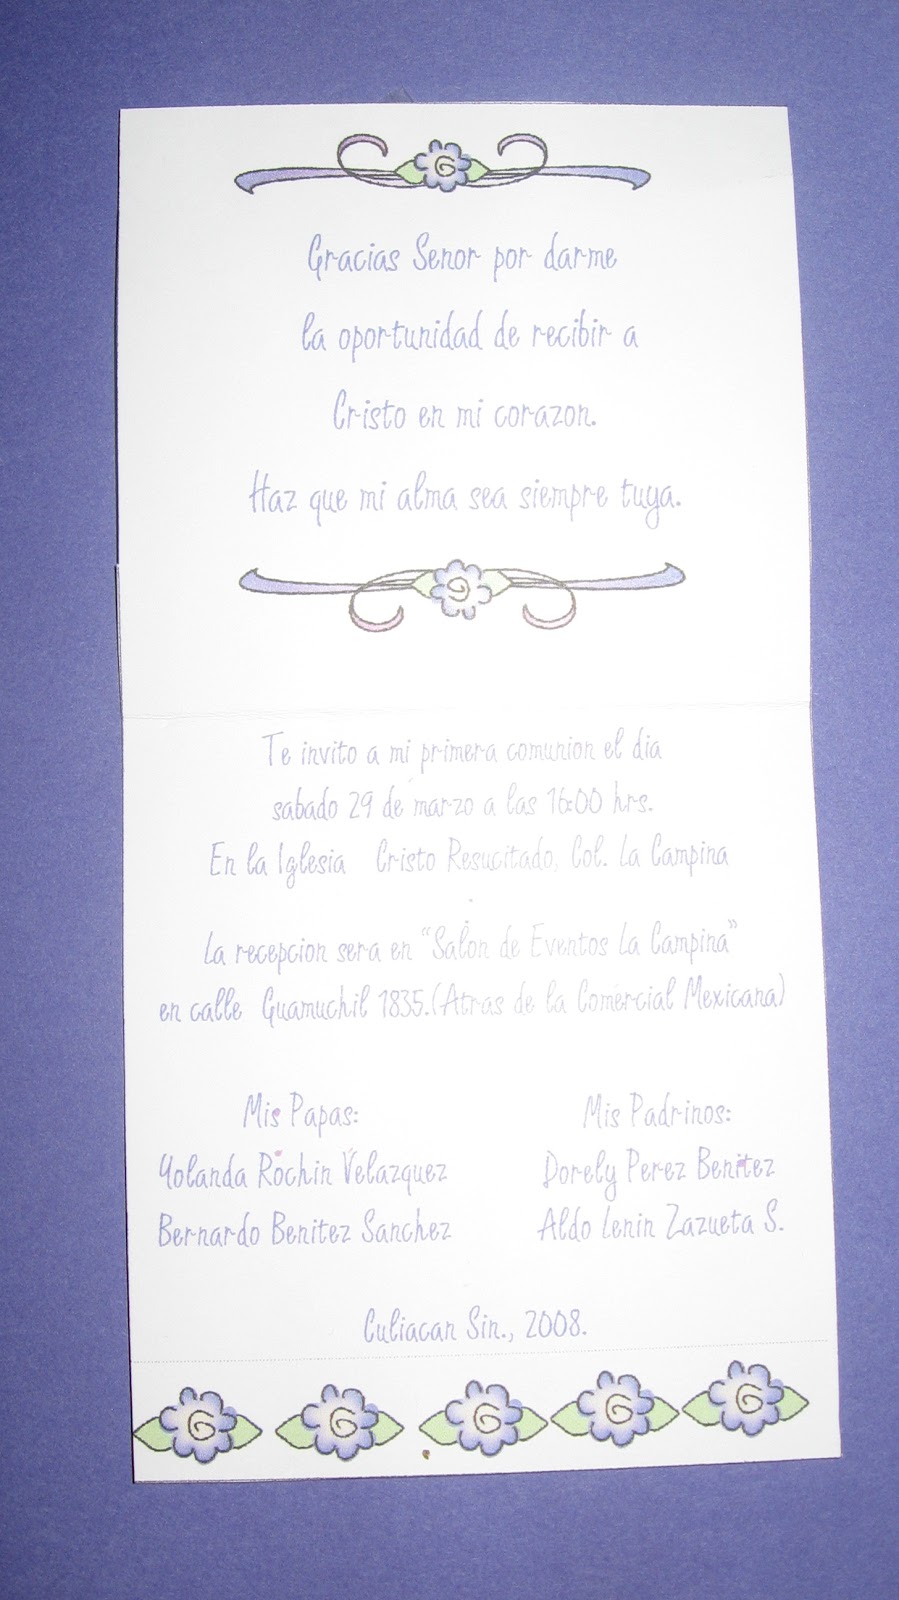 Gracias Senor por darme
la oportunidad de recibir a
Cristo en mi corazon.
Haz que mi alma sea siempre tuya.
Te invito a mi primera comunion el dia
sabado 29 de marzo a las 16:00 hrs.
En la Iglesia Cristo Resucitado, Col. La Campina
La recepcion sera en "Salon de Eventos La Campina"
en calle Guamuchil 1835.(Atras de la Comercial Mexicana)
Mis Papas:
Yolanda Rochin Velazquez
Bernardo Benitez Sanchez
Mis Padrinos:
Dorely Perez Benitez
Aldo Lenin Zazueta S.
Culiacan Sin., 2008.